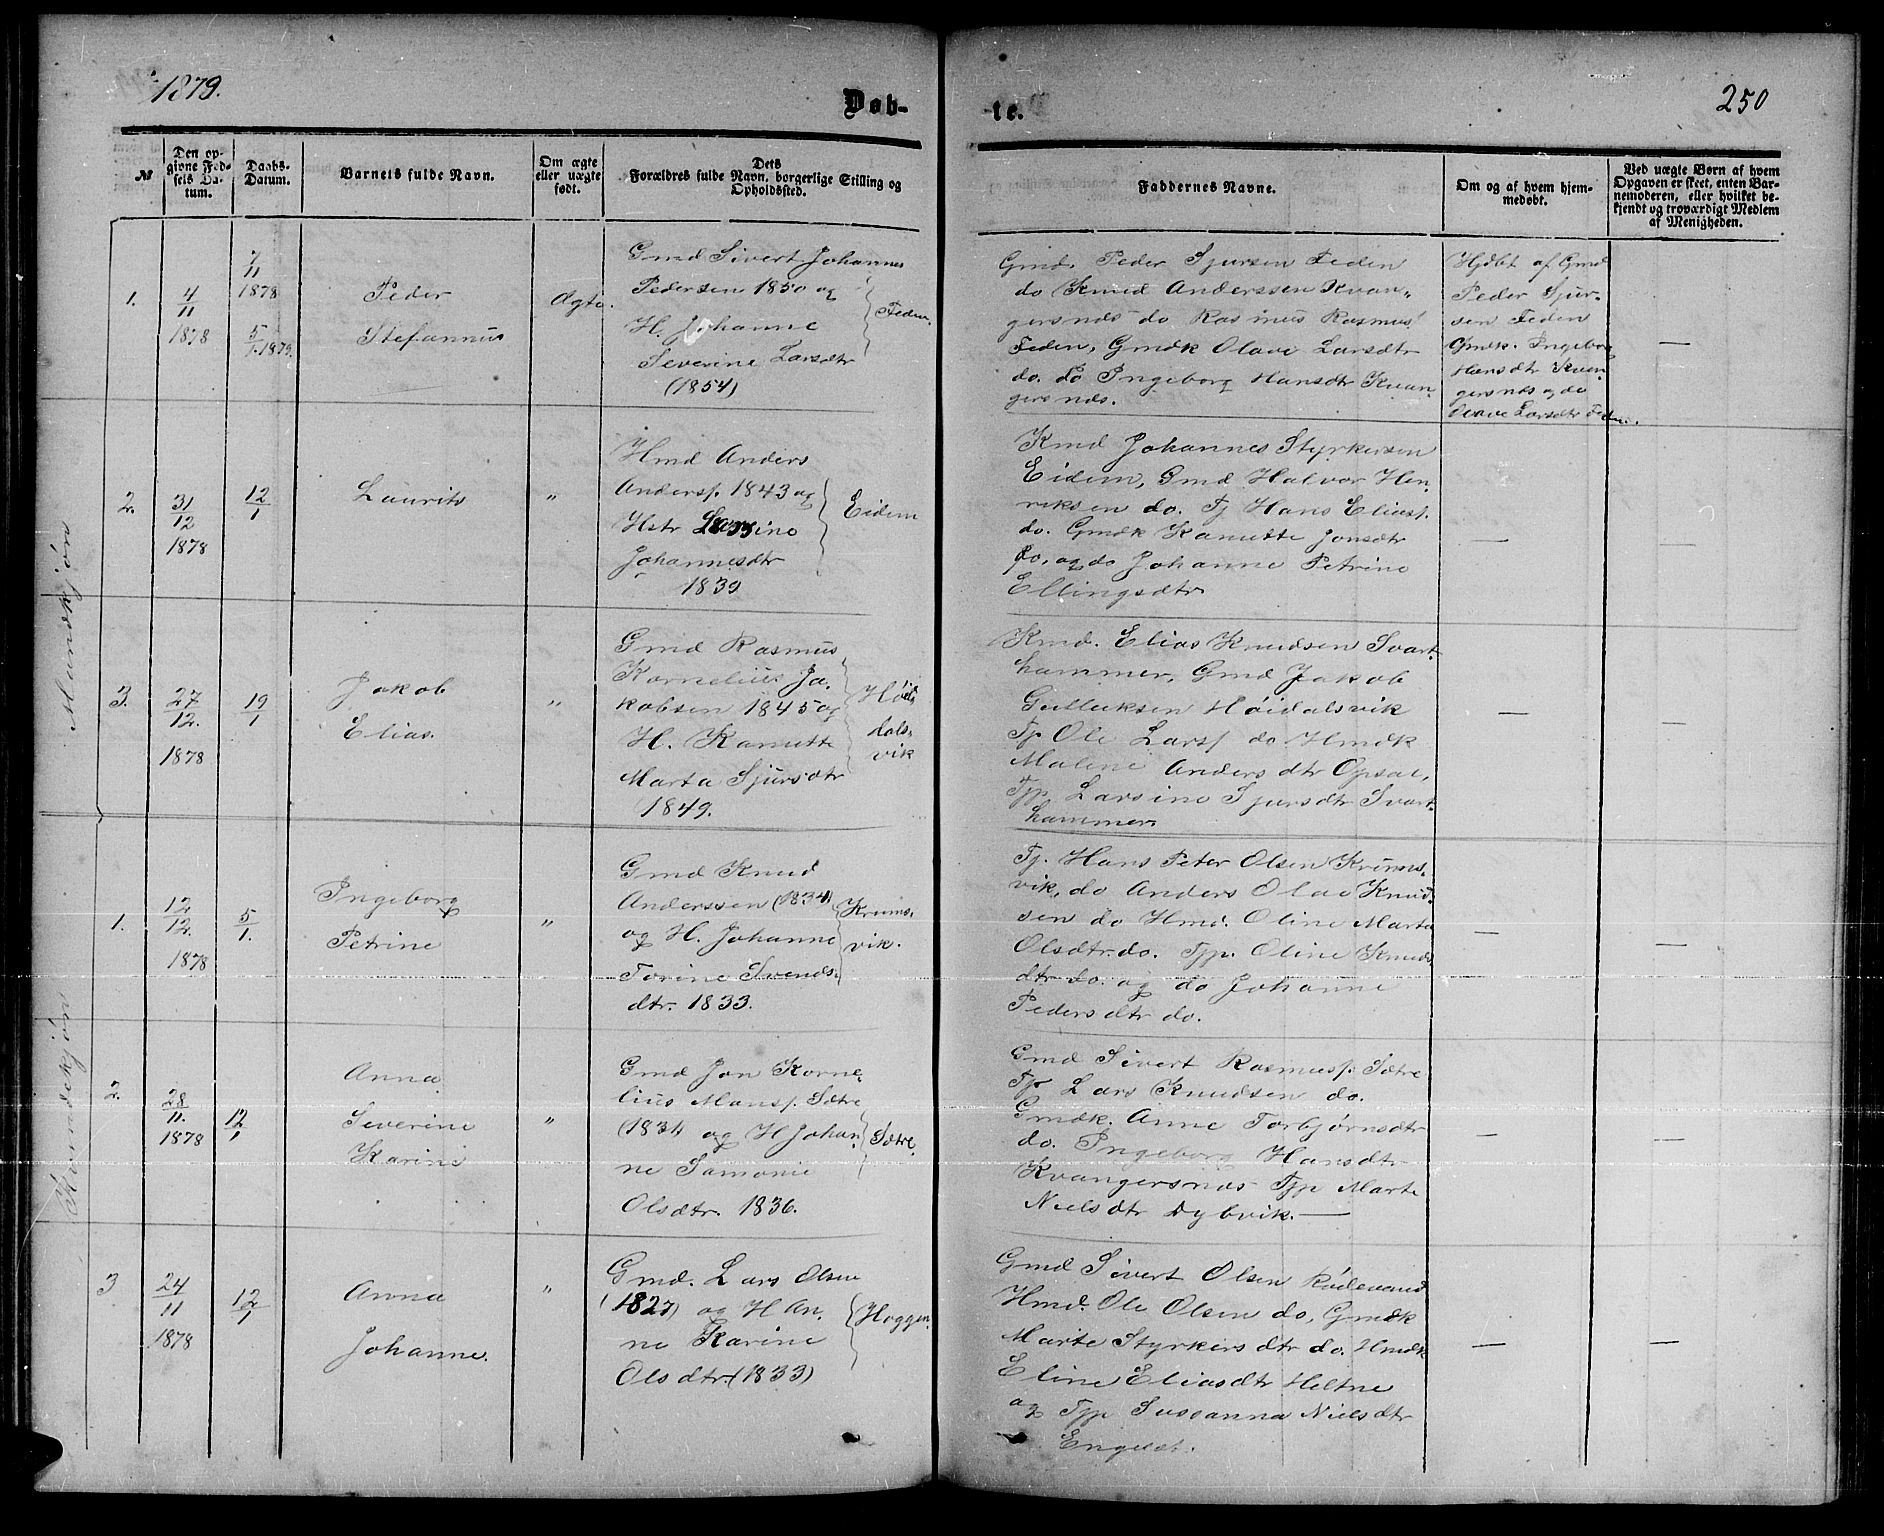 1879.
Døb-
te.
250
№
Den op-
givne Fød-
sels Da-
tum.
Daabs-
Datum.
Barnets fulde Navn.
Om ægte
eller uægte
født.
Dets
Forældres fulde Navn, borgerlige Stilling og
Opholdssted.
Faddernes Navne.
Om og af hvem hjem-
medøbt.
Ved uægte Børn af hvem
Opgaven er skeet, enten Bar-
nemoderen, eller hvilket be-
kjendt og troværdigt Medlem
af Menigheden.
Mandkjøn
1.
4/11
1878
7/11
1878
5/1 1879.
Peder
Stefannus
Ægte.
Gmd Sivert Johannes
Pedersen 1850 og
H. Johanne
Severine Larsdtr
(1854)
Feden.
Gmd. Peder Sjursen Feden
do Knud Anderssen Kvan-
gersnæs do Rasmus Rasmus.
Feden, Gmdk Olave Larsdtr
do. do Ingeborg Hansdtr Kvan-
gersnæs.
Hjdbt af Gmd
Peder Sjur-
sen Feden
Gmdk. Ingeborg
Hansdtr Kvan-
gersnæs og do
Olave Larsdtr Feden.
—
2.
31/12
1878
12/1
Laurits
"
Hmd Anders
Andersf. 1843 og
Hstr Larsine
Johannesdtr
1839
Eidem
Kmd Johannes Styrkersen
Eidem, Gmd Halvor Hen-
riksen do. Tj Hans Eliasf.
do. Gmdk Kanutte Jonsdtr
do, og do Johanne Petrine
Ellingsdtr
—
—
3.
27/12.
1878
19/1
Jakob
Elias.
"
Gmd Rasmus
Kornelius Ja-
kobsen 1845 og
H. Kanutte
Marta Sjursdtr
1849.
Høi-
dals-
vik
Kmd. Elias Knudsen Svart-
hammer, Gmd Jakob
Gulleksen Høidalsvik
Tj. Ole Larsf do Hmdk
Malene Andersdtr Opsal,
Tjp. Larsine Sjursdtr Svart
hammer.
—
—
Kvindekjøn
1.
12/12.
1878
5/1.
Ingeborg
Petrine
"
Gmd Knud
Anderssen (1834)
og H. Johanne
Torine Svends-
dtr. 1833.
Krums-
vik.
Tj. Hans Peter Olsen Krums-
vik, do Anders Olao Knud-
sen do Hmd. Oline Marta
Olsdtr do. Tjp. Oline Knuds
dtr do. og do Johanne
Pedersdtr do.
—
—
2.
28/11.
1878
12/1
Anna
Severine
Karine
"
Gmd Jon Korne-
lius Mansf. Sætre
(1834 og H Johan-
ne Samonie
Olsdtr. 1836.
Sætre
Gmd Sivert Rasmusf. Sætre
Tj. Lars Knudsen do.
Gmdk. Anne Torbjørnsdtr
do. Ingeborg Hansdtr
Kvangersnæs Tjp Marte
Nielsdtr Dybvik. —
—
—
3
24/11
1878
12/1
Anna
Johanne.
"
Gmd. Lars Olsen
(1827) og H An-
ne Karine
Olsdtr (1833)
Hoggen.
Gmd Sivert Olsen Rødevand
Hmd. Ole Olsen do, Gmdk
Marte Styrkersdtr do. Hmdk
Eline Eliasdtr Heltne
og Tjp Sussanna Nielsdtr
—
—